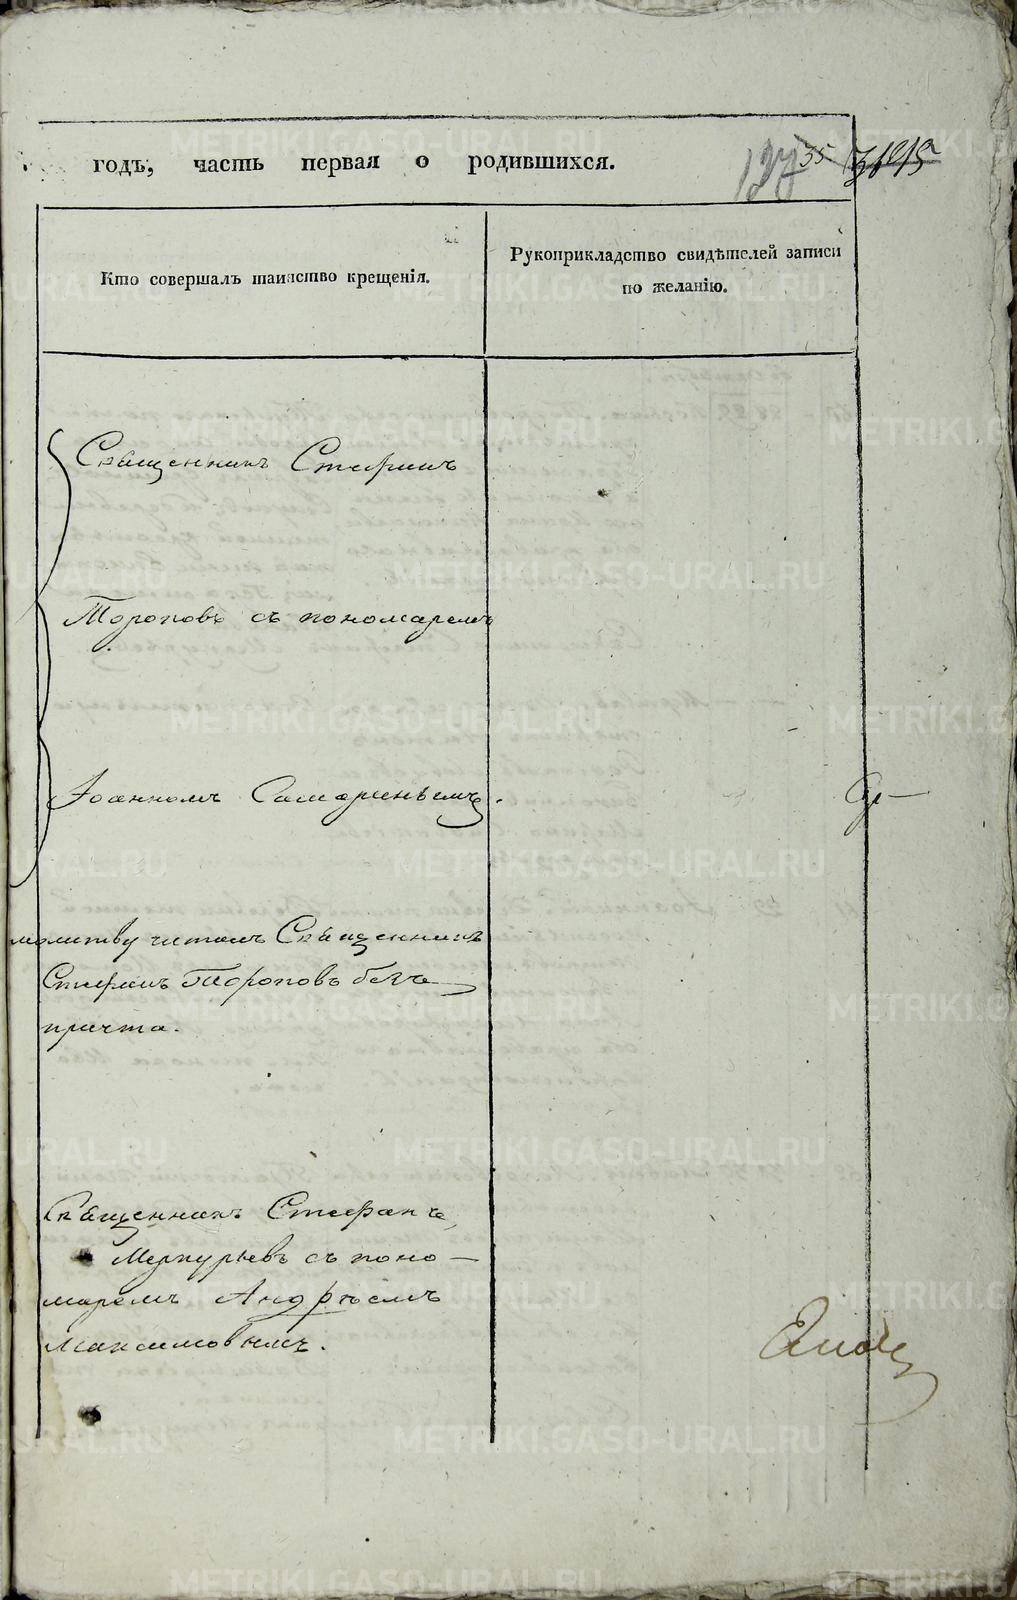 годъ, часть первая о родившихся.
127 35
Кто совершалъ таинство крещенія.
Рукоприкладство свидѣтелей записи
по желанію.
Священникъ Стефанъ
Тороповъ съ пономаремъ
Іоанномъ Самаринымъ.
молитву читалъ Священникъ
Стефанъ Тороповъ безъ
причта.
Священникъ Стефанъ
Меркурьевъ съ поно-
маремъ Андрѣемъ
Максимовымъ.
METRIKI.GASO-URAL.RU